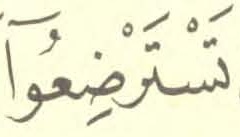 تَسْتَرْضِعُوٓا